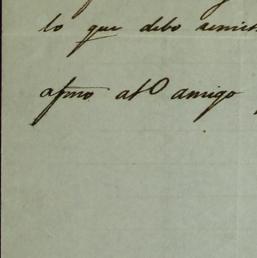 lo que debo
afmo at° amigo